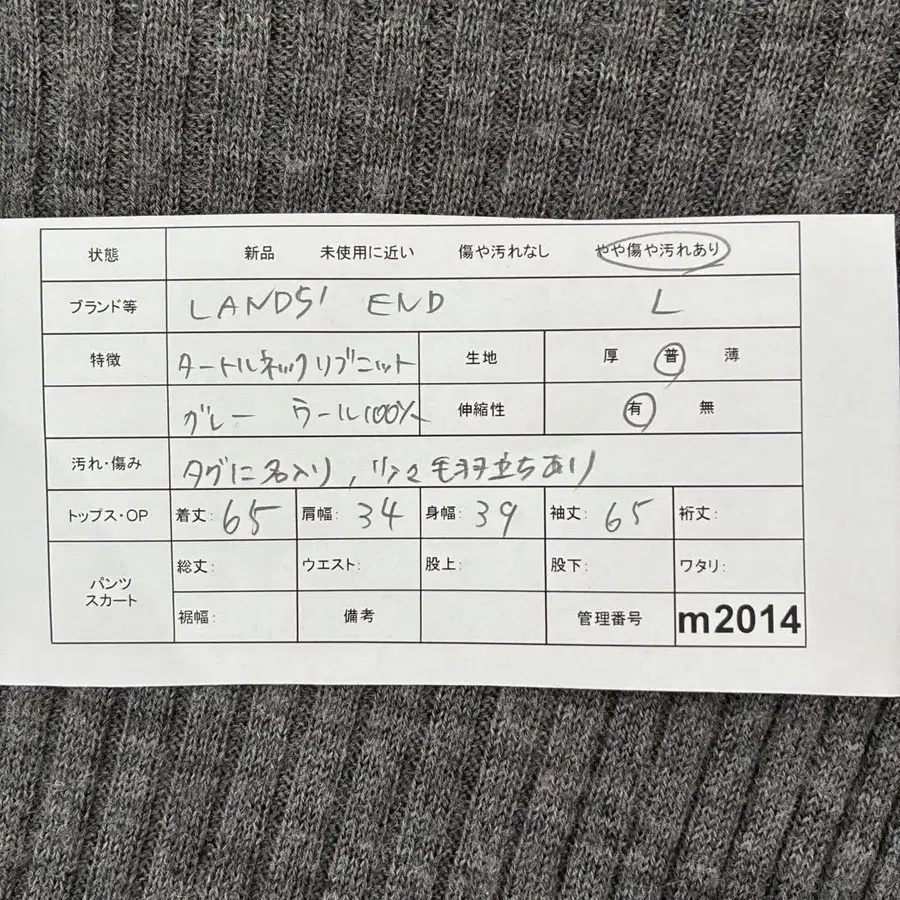 状態 新品 未使用に近い 傷や汚れなし やや傷や汚れあり
ブランド等 LANDS' END L
特徴 タートルネックリブニット 生地 厚 普 薄
グレー ウール100% 伸縮性 有 無
汚れ・傷み タグに名入り, 毛羽立ちあり
トップス・OP 着丈: 65 肩幅: 34 身幅: 39 袖丈: 65 裄丈:
パンツ スカート 総丈: ウエスト: 股上: 股下: ワタリ:
裾幅: 備考 管理番号 m2014